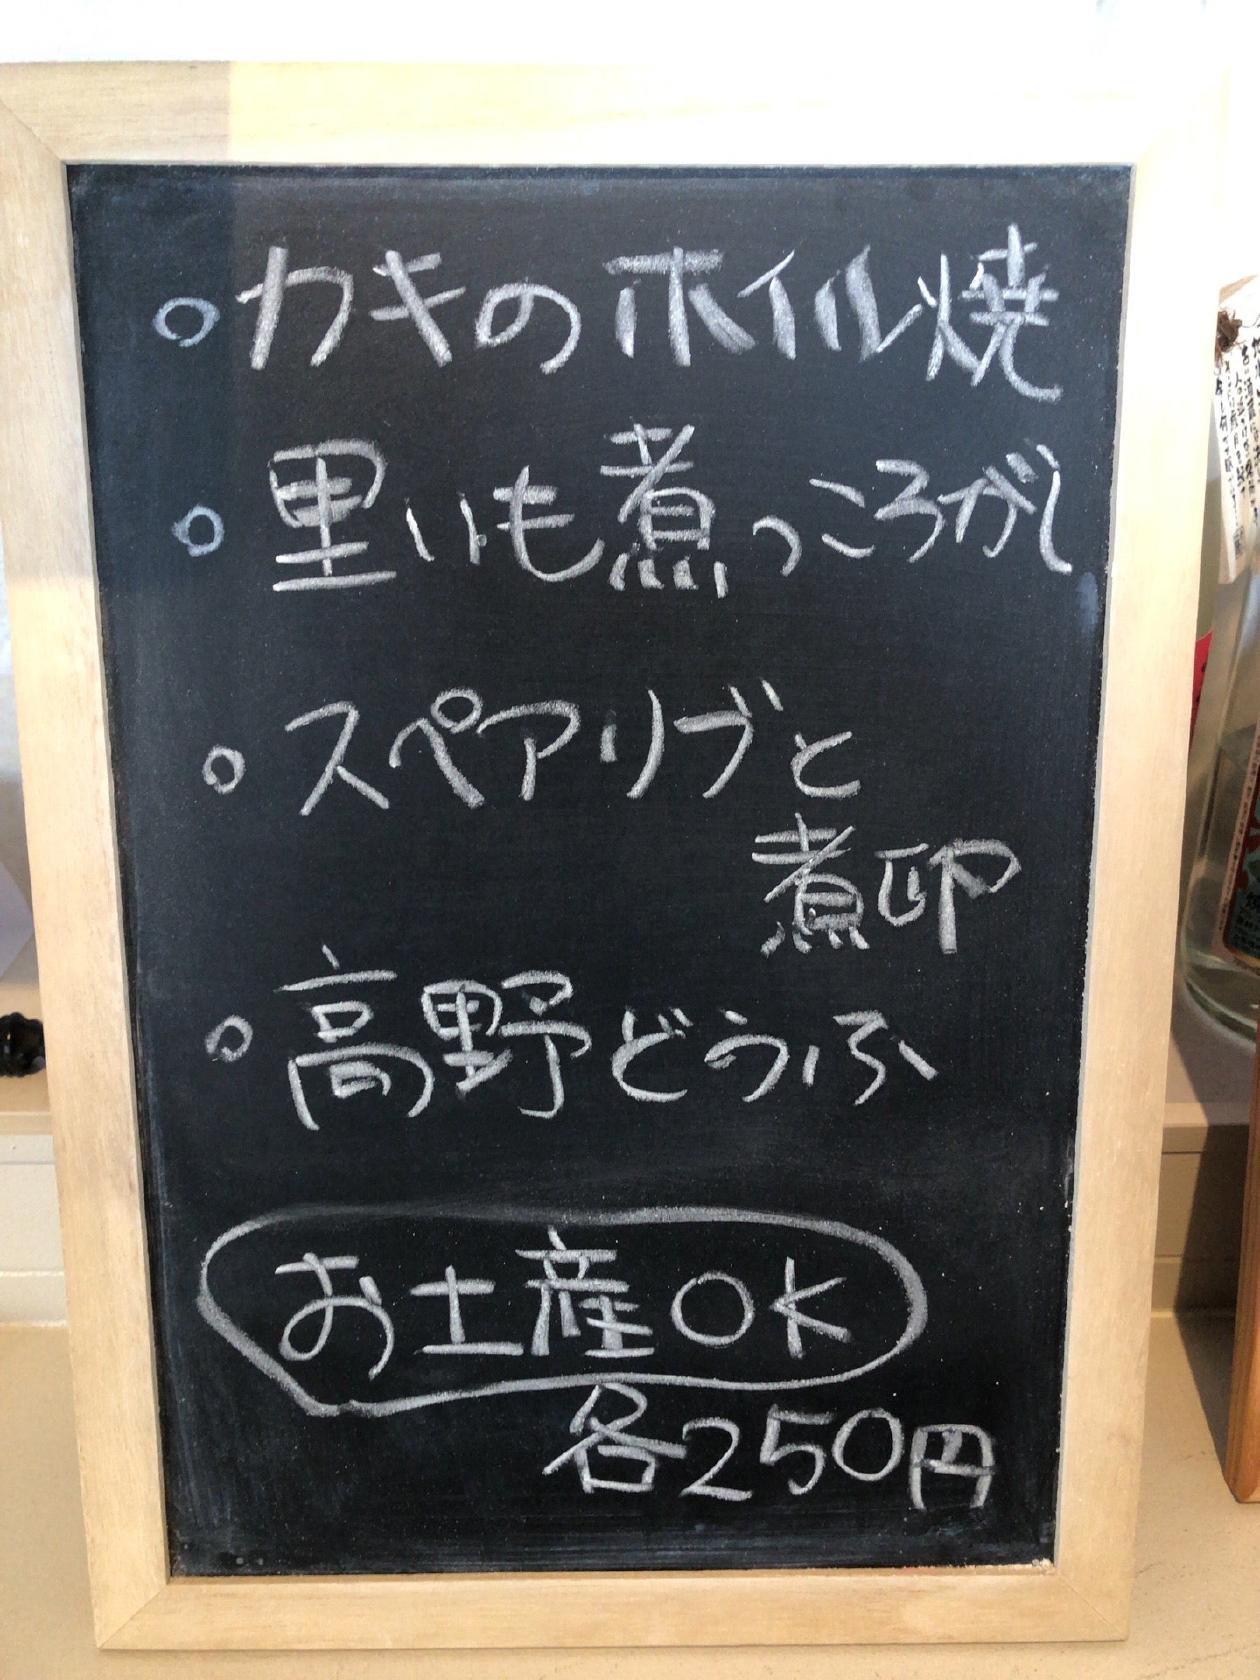 ○カキのホイル焼
○里いも煮っころがし
○スペアリブと
煮卵
○高野どうふ
お土産OK
各250円